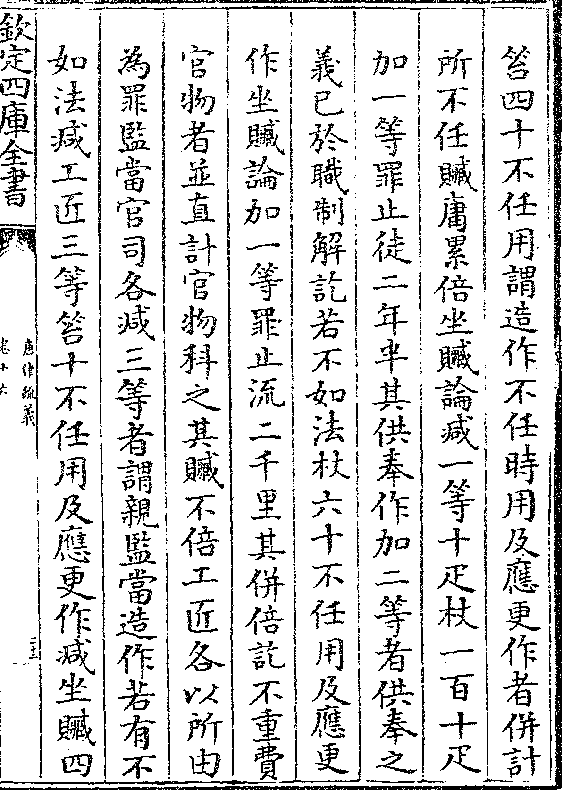 笞四十不任用謂造作不任時用及應更作者併計
所不任贓庸累倍坐贓論減一等十疋杖一百十疋
加一等罪止徒二年半其供奉作加二等者供奉之
義已於職制解訖若不如法杖六十不任用及應更
作坐贓論加一等罪止流二千里其併倍訖不重費
官物者並直計官物科之其贓不倍工匠各以所由
為罪監當官司各減三等者謂親監當造作若有不
如法減工匠三等笞十不任用及應更作減坐贓四
欽定四庫全書
唐律疏義